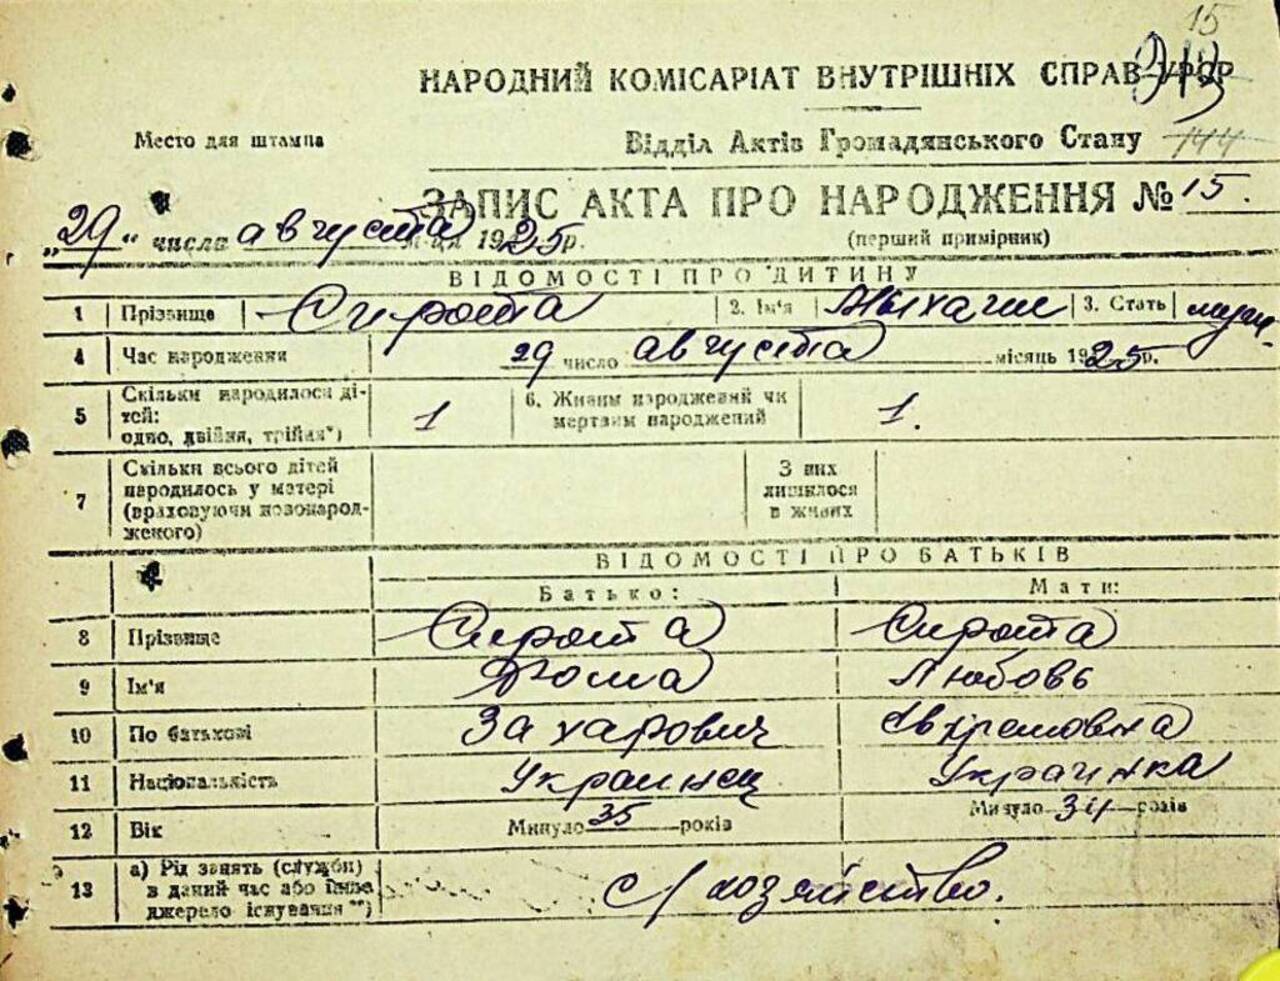 15
НАРОДНИЙ КОМІСАРІАТ ВНУТРІШНІХ СПРАВ УРСР
Место для штампа
Відділ Актів Громадянського Стану 144
ЗАПИС АКТА ПРО НАРОДЖЕННЯ № 15.
"29" числа августа м-ця 1925 р.
(перший примірник)
ВІДОМОСТІ ПРО ДИТИНУ
1 Прізвище Сирота 2. Ім'я Мыхаил 3. Стать муж-
4 Час народження 29 число августа місяць 1925 р.
5 Скільки народилося ді-
тей:
одно, двійня, трійня*) 1 6. Живим народжений чи
мертвим народжений 1.
7 Скільки всього дітей
народилось у матері
(враховуючи новонарод-
женого) З них
лишилося
в живих
ВІДОМОСТІ ПРО БАТЬКІВ
Батько: Мати:
8 Прізвище Сирота Сирота
9 Ім'я Фома Любовь
10 По батькові Захарович Євхремовна
11 Національність Украинец Украинка
12 Вік Минуло 35 років Минуло 34 років
13 а) Рід занять (служби)
в даний час або інше
джерело існування **) с/хозяйство.